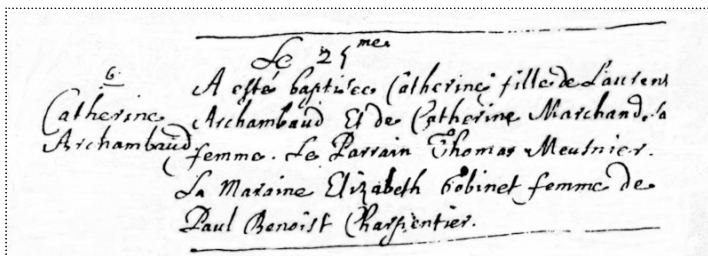 Le 25me
6
Catherine
Archambaud
A esté baptisée Catherine fille de Laurens
Archambaud Et de Catherine Marchand. sa
femme. Le Parrain Thomas Meusnier.
La Maraine Elizabeth Gobinet femme de
Paul Benoist Charpentier.